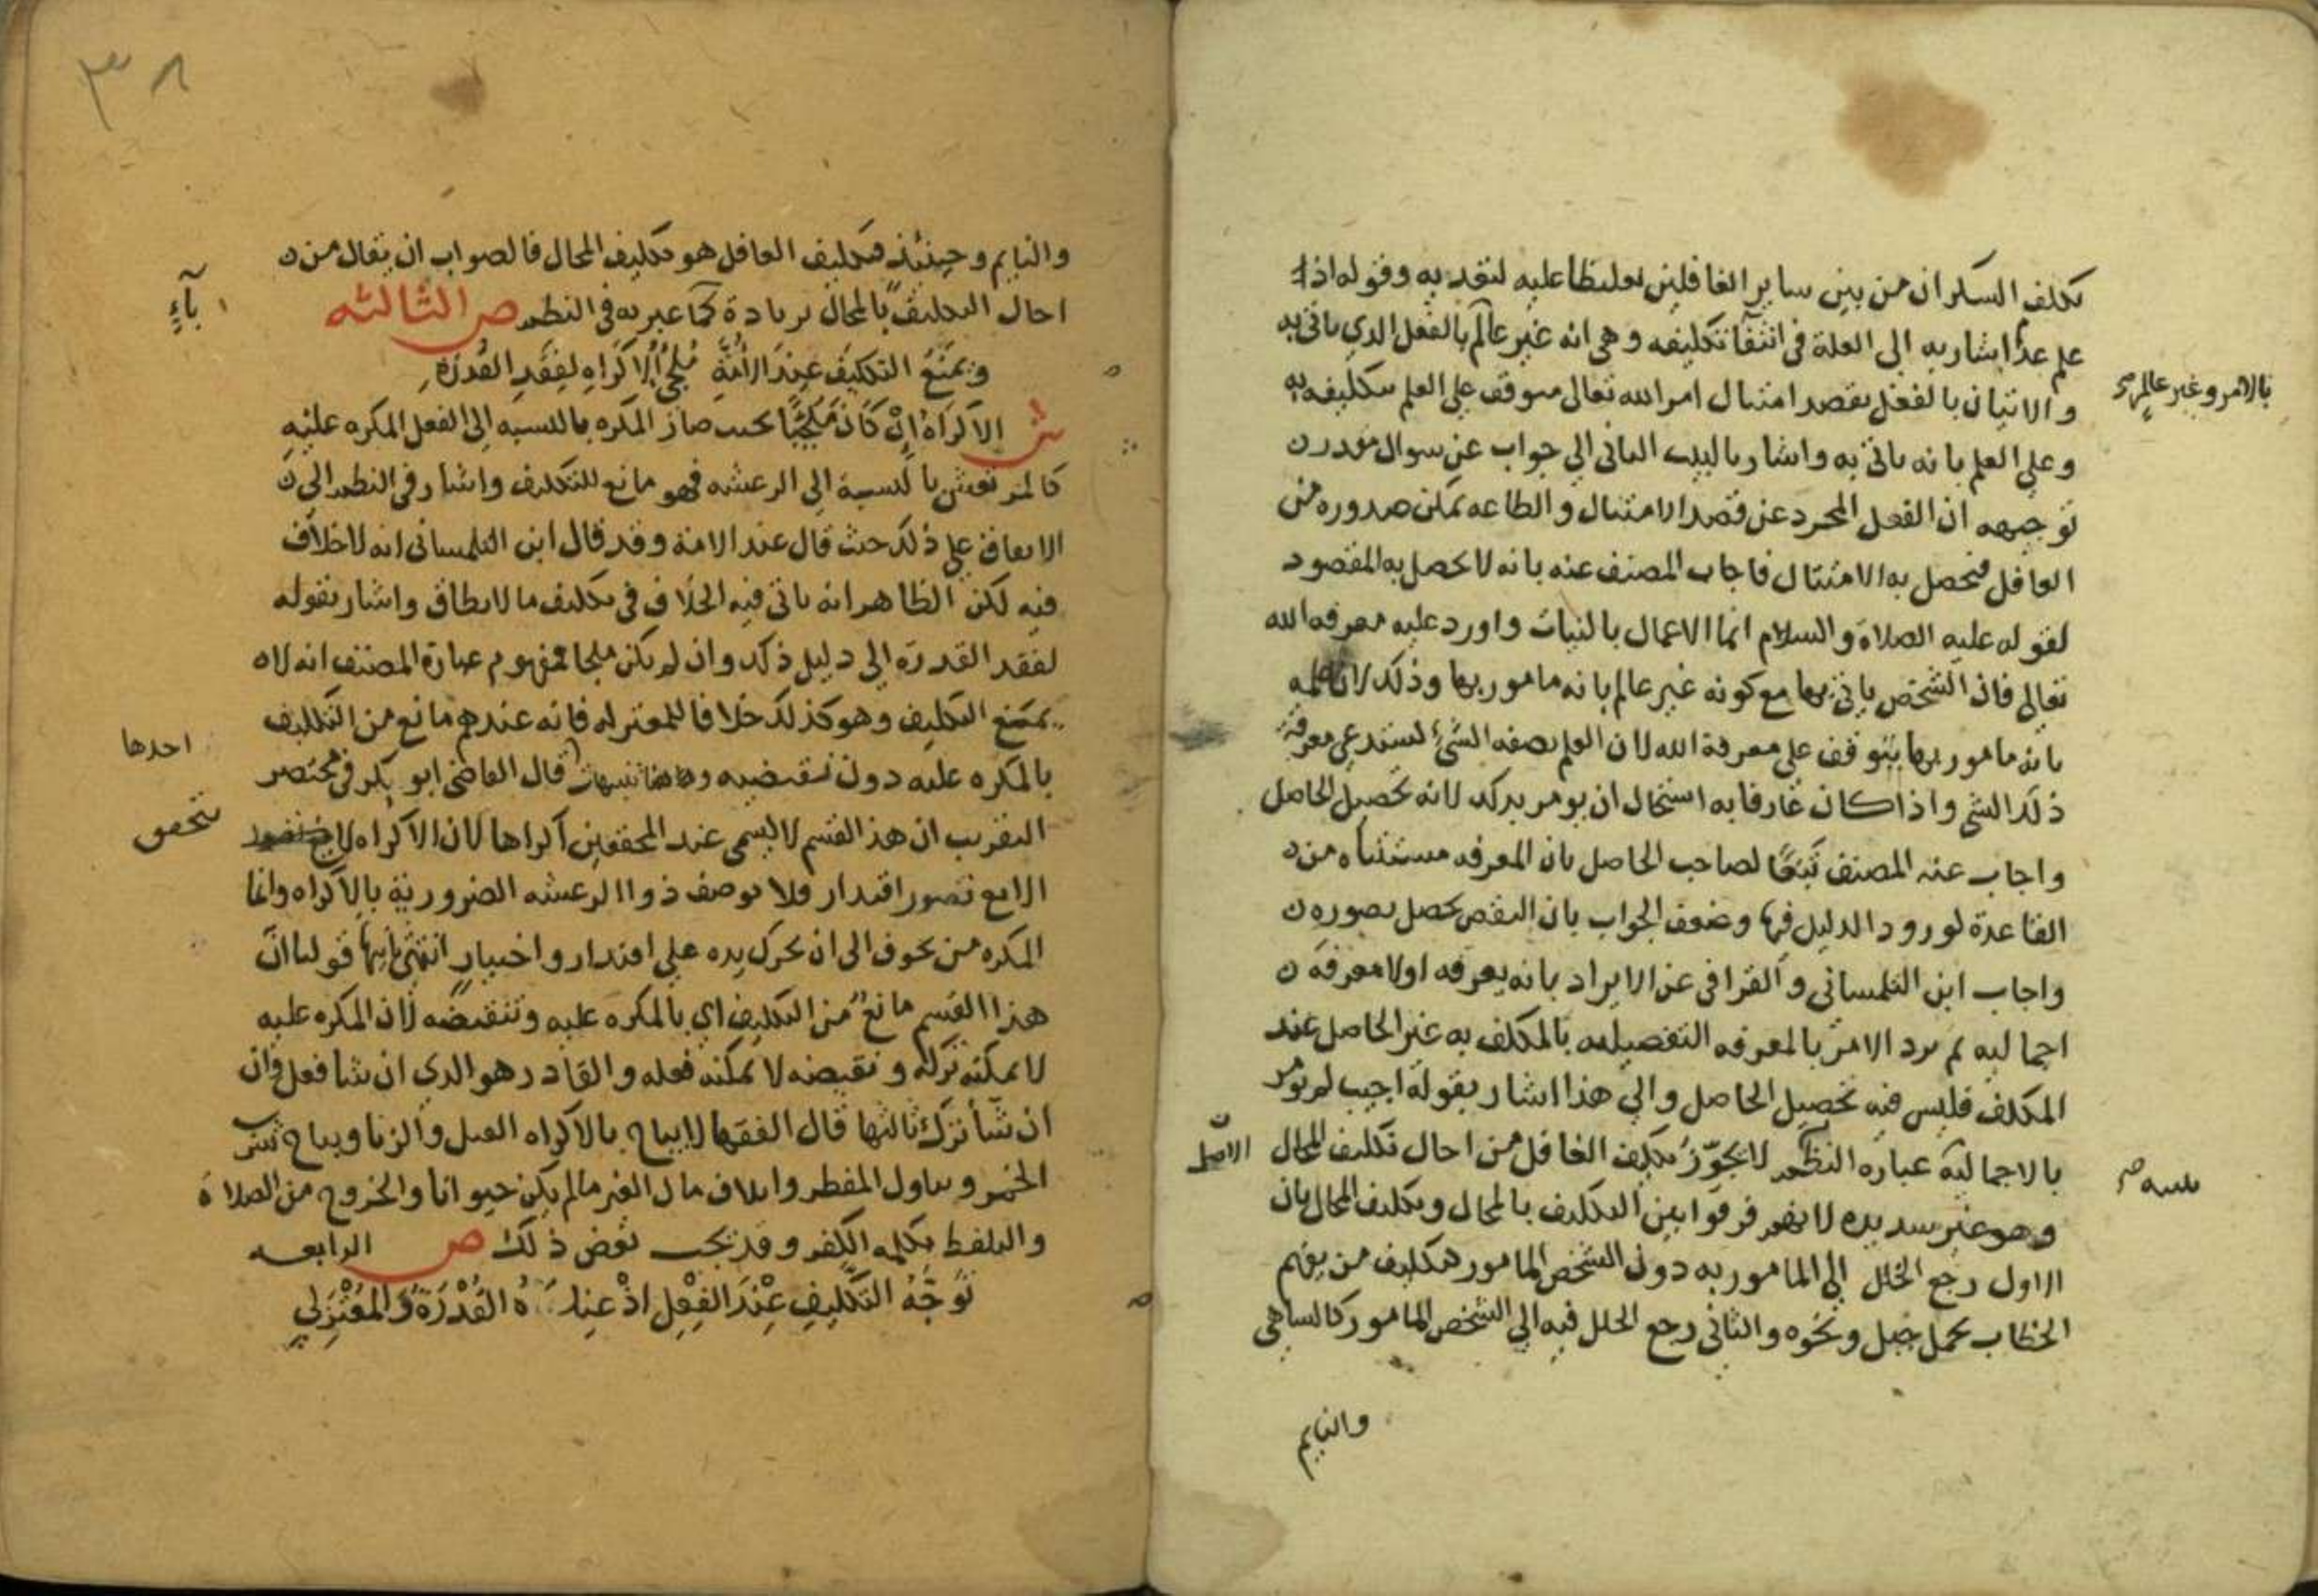 تكلف السكران من بين ساير الغافلين تغليظا عليه لتعديه وقوله اذا
علم عدا اشار به الى العلة في انتفا تكليفه وهي انه غير عالم بالفعل الذي ياتي به
بالامر وغير عالم
والاتيان بالفعل بقصد امتثال امر الله تعالى متوقف على العلم بتكليفه به
وعلى العلم بانه ياتي به واشار بالبيت الثاني الي جواب عن سوال مقدر
توجيهه ان الفعل المجرد عن قصد الامتثال والطاعه يمكن صدوره من
الغافل فيحصل به الامتثال فاجاب المصنف عنه بانه لا يحصل به المقصود
لقوله عليه الصلاة والسلام انما الاعمال بالنيات واورد عليه معرفة الله
تعالى فان الشخص ياتي بها مع كونه غير عالم بانه مامور بها وذلك لان علمه
بانه مامور بها يتوقف على معرفة الله لان العلم بصفه الشيء يستدعي معرفة
ذلك الشي واذا كان عارفا به استحال ان يومر بذلك لانه تحصيل الحاصل
واجاب عنه المصنف تبعا لصاحب الحاصل بان المعرفه مستثناه من
القاعدة لورود الدليل فيها وضعف الجواب بان النقض يحصل بصوره
واجاب ابن التلمساني والقرافي عن الايراد بانه يعرفه اولا معرفة
اجماليه ثم يرد الامر بالمعرفه التفصيليه بالمكلف به غير الحاصل عند
المكلف فليس فيه تحصيل الحاصل والي هذا اشار بقوله اجيب لم يومر
بالاجماليه عباره النظم لا يجوز تكليف الغافل من احال تكليف المحال
الاصل
وهو غير سديد لانهم فرقوا بين التكليف بالمحال وتكليف المحال بان
الاول رجع الخلل الى المامور به دون الشخص المامور فتكليف من يفهم
الخطاب بحمل جبل ونحوه والثاني رجع الخلل فيه الي الشخص المامور كالساهي
والنايم
٣٨
والنايم وحينئذ فتكليف الغافل هو تكليف المحال فالصواب ان يقال من
احال التكليف بالمحال بزيادة كما عبر به في النظم ص الثالثه
باء
ويمنع التكليف عند الائمة ملجئ الاكراه لفقد القدرة
ش الاكراه ان كان ملجئا بحيث صار المكره بالنسبه الى الفعل المكره عليه
كالمرتعش بالنسبة الي الرعشه فهو مانع للتكليف واشار في النظم الي
الاتفاق على ذلك حيث قال عند الائمة وقد قال ابن التلمساني انه لا خلاف
فيه لكن الظاهر انه ياتي فيه الخلاف في تكليف ما لا يطاق واشار بقوله
لفقد القدرة الي دليل ذلك وان لم يكن ملجا فمفهوم عبارة المصنف انه لا
يمتنع التكليف وهو كذلك خلافا للمعتزله فانه عندهم مانع من التكليف
احدها
بالمكره عليه دون نقيضيه وهاهنا تنبيهات قال القاضي ابو بكر في مختصر
التقريب ان هذا القسم لا يسمى عند المحققين اكراها لان الاكراه لا
يتحقق
الا مع تصور اقتدار فلا يوصف ذوا الرعشه الضرورية بالاكراه وانما
المكره من يخوف الى ان يحرك يده على اقتدار واختيار انتهى ثانيها قولنا ان
هذا القسم مانع من التكليف اي بالمكره عليه وبنقيضه لان المكره عليه
لا يمكنه تركه ونقيضه لا يمكنه فعله والقادر هو الذي ان شا فعل وان
ان شأ ترك ثالثها قال الفقها لا يباح بالاكراه القتل والزنا ويباح شرب
الخمر وتناول المفطر واتلاف مال الغير ما لم يكن حيوانا والخروج من الصلاة
والتلفظ بكلمه الكفر وقد يجب بعض ذلك ص الرابعه
توجه التكليف عند الفعل اذ القدرة والمعتزلي